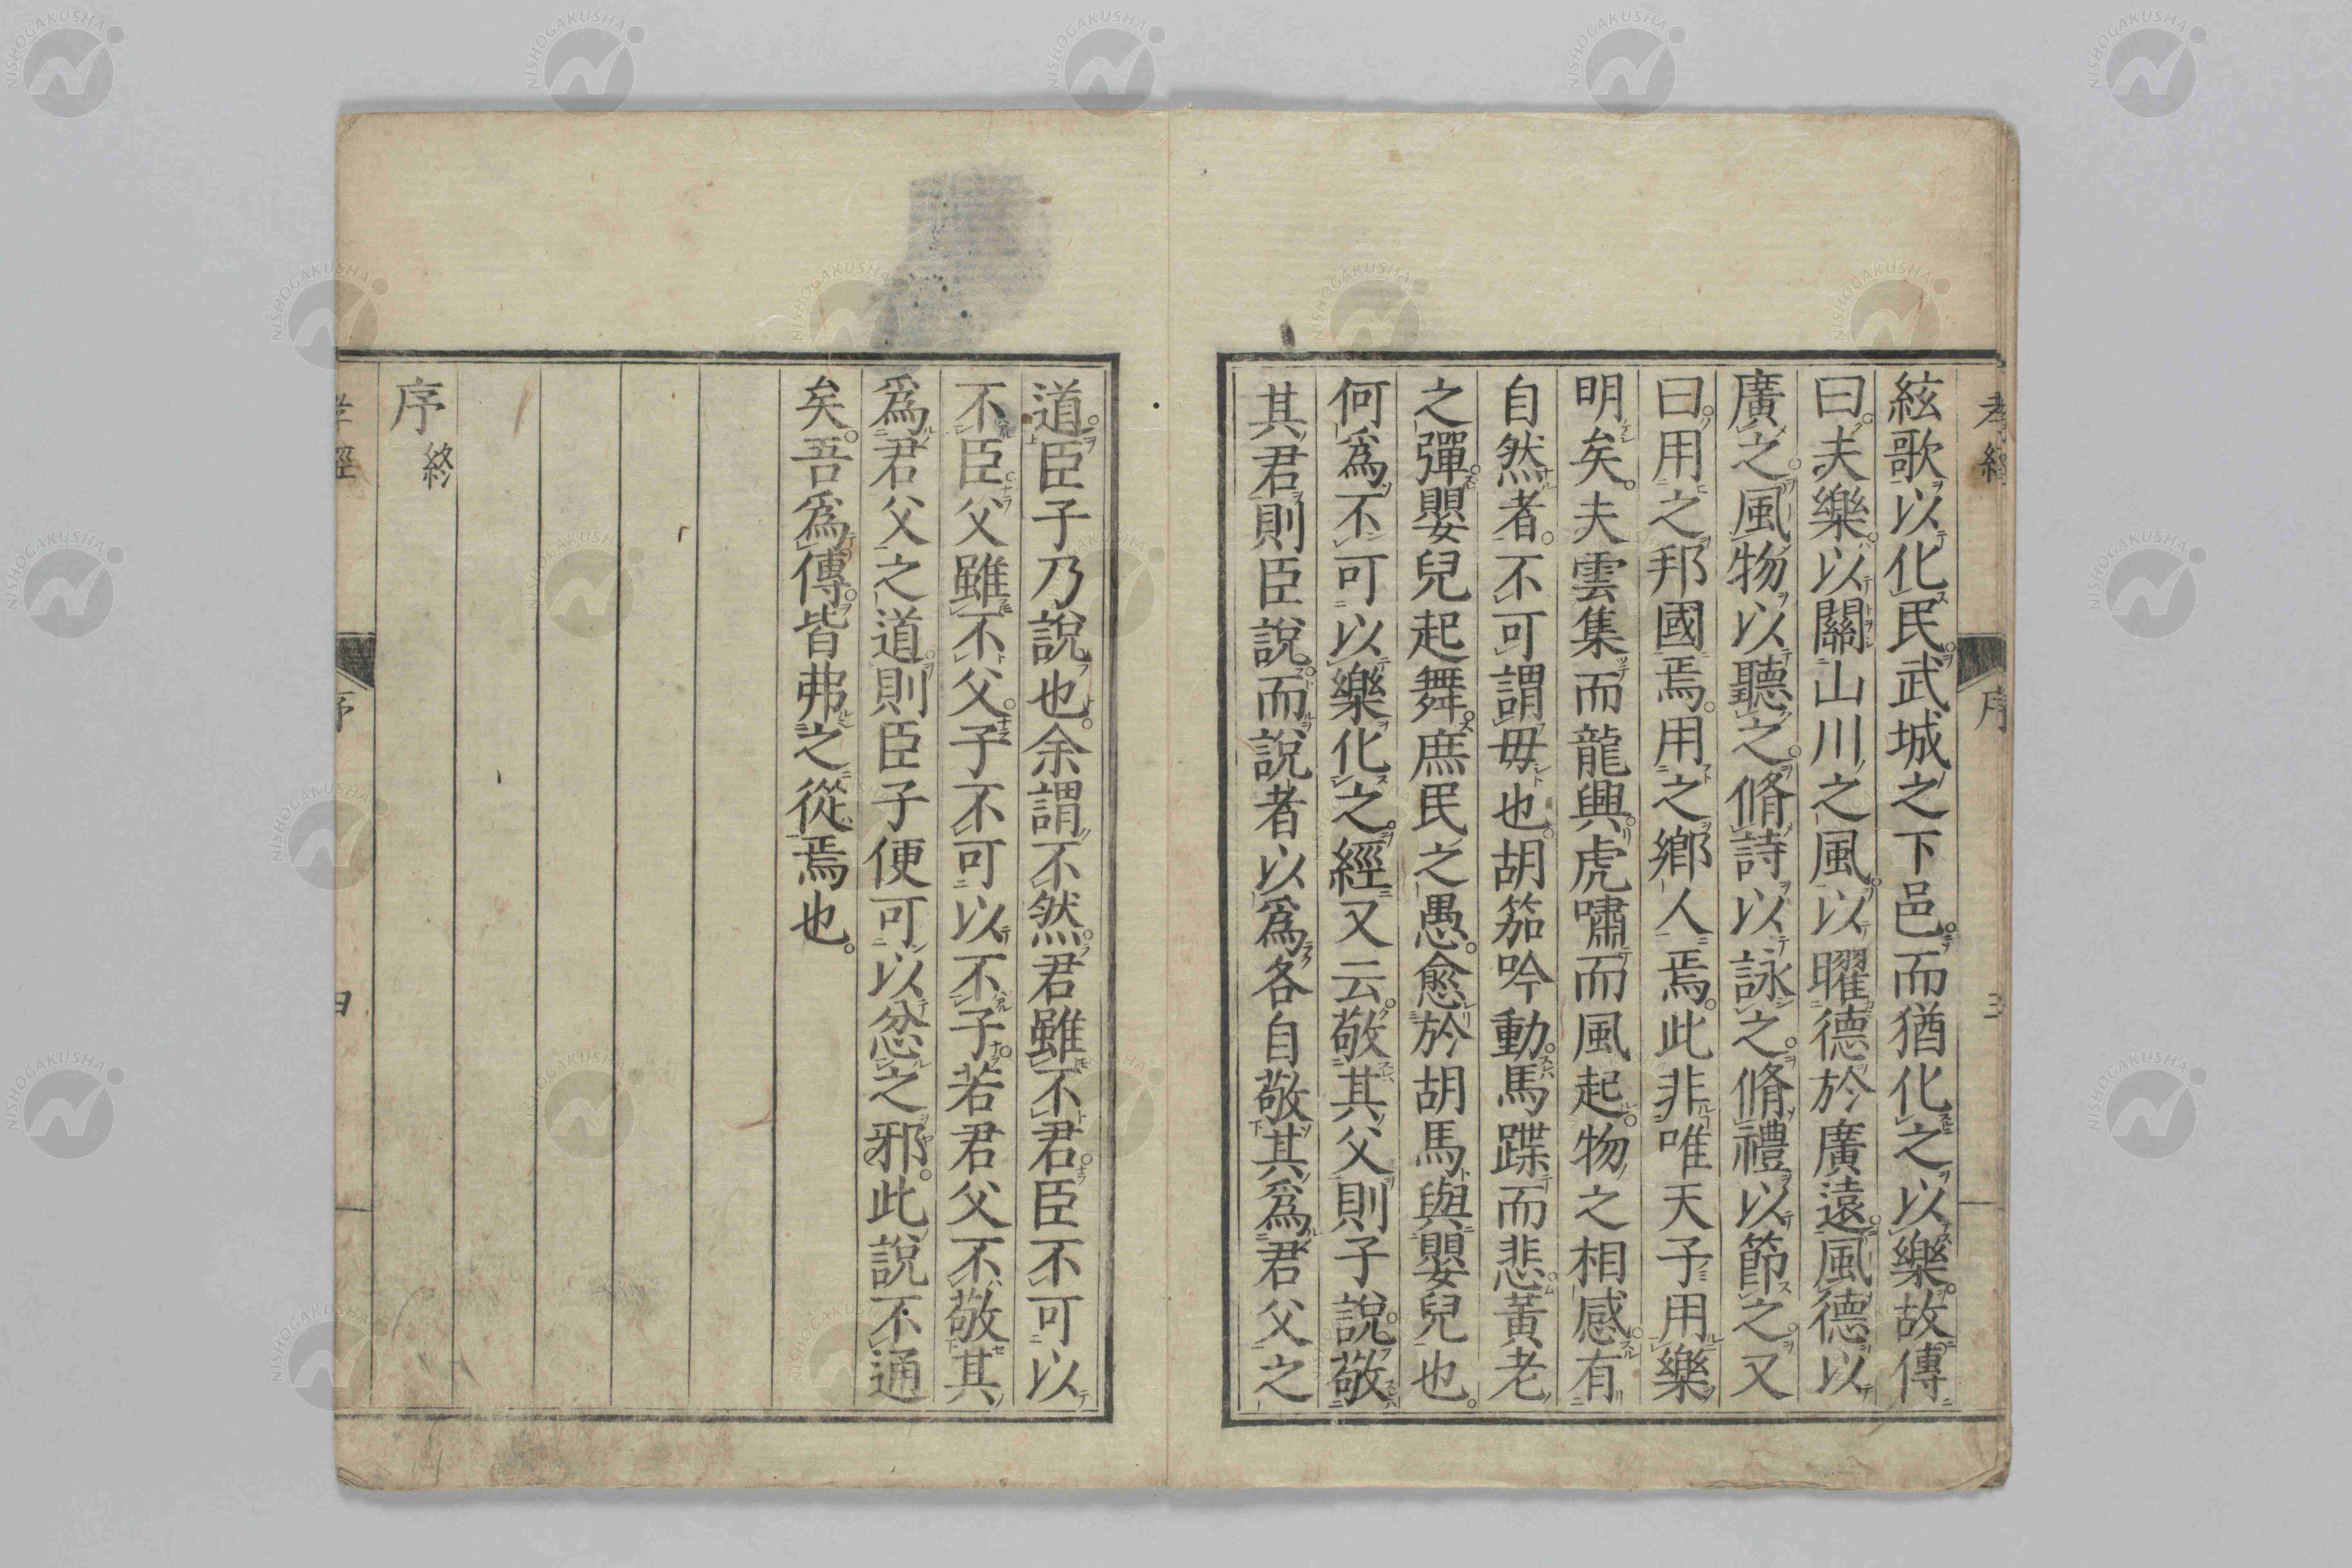 孝經 序 三
絃歌以化民武城之下邑而猶化之以樂故傳
曰夫樂以關山川之風以曜德於廣遠風德以
廣之風物以聽之脩詩以詠之脩禮以節之又
曰用之邦國焉用之鄉人焉此非唯天子用樂
明矣夫雲集而龍興虎嘯而風起物之相感有
自然者不可謂毋也胡笳吟動馬蹀而悲黃老
之彈嬰兒起舞庶民之愚愈於胡馬與嬰兒也
何爲不可以樂化之經又云敬其父則子說敬
其君則臣說而說者以爲各自敬其爲君父之
道臣子乃說也余謂不然君雖不君臣不可以
不臣父雖不父子不可以不子若君父不敬其
爲君父之道則臣子便可以忿之邪此說不通
矣吾爲傳皆弗之從焉也
序終
孝經 序
NISHOGAKUSHA